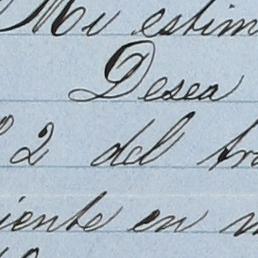 Mi estim
Desea
2 del tra
iente en